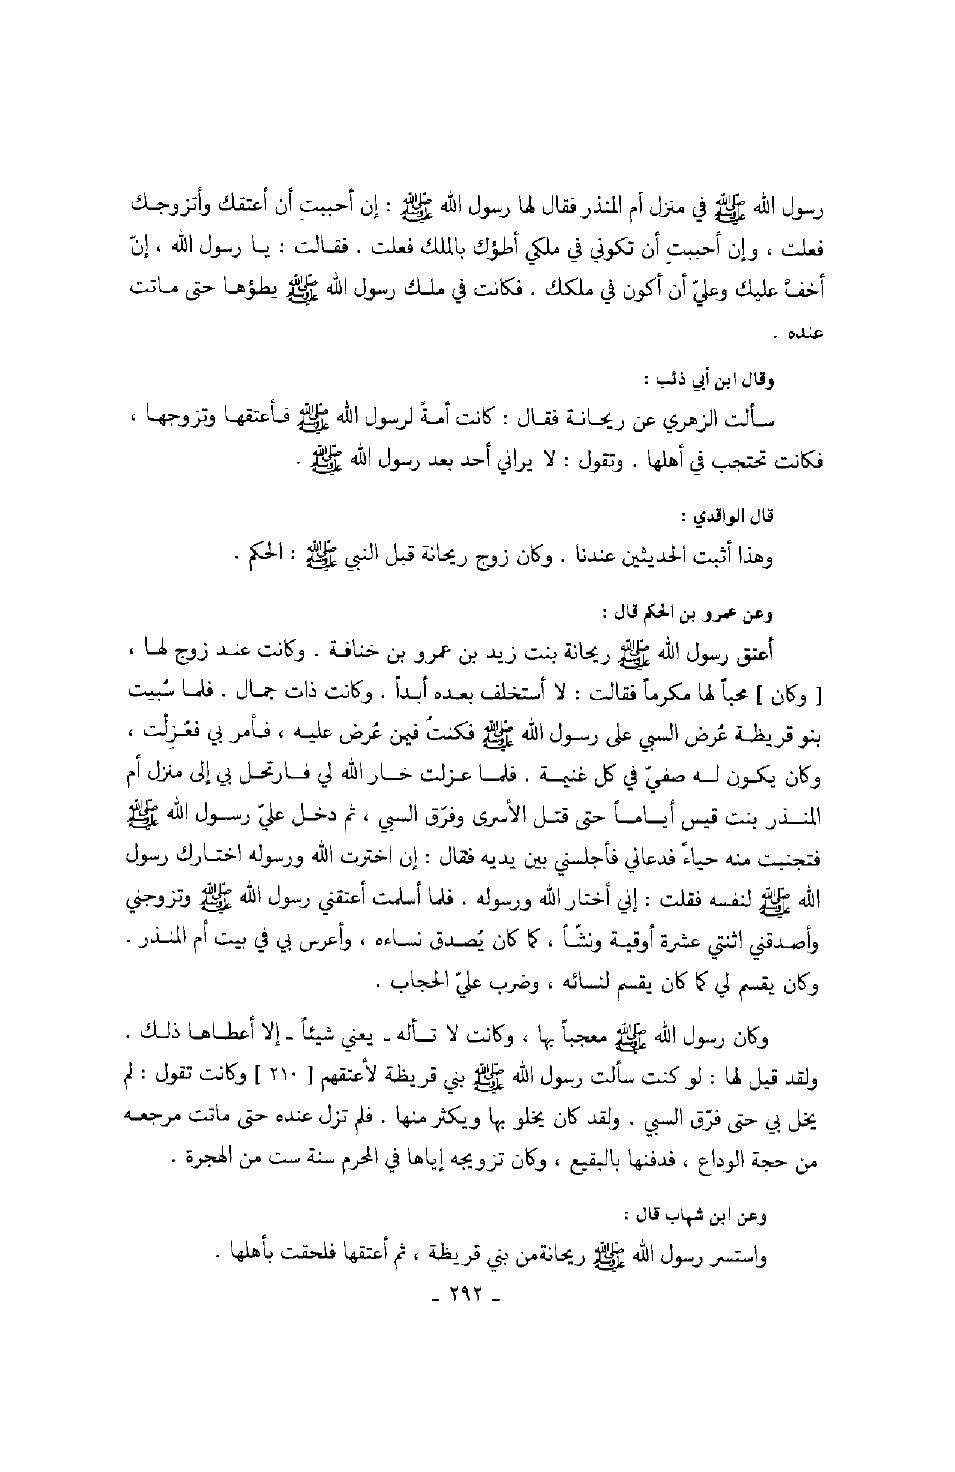 رسول الله ﷺ في منزل أم المنذر فقال لها رسول الله ﷺ : إن أحببتِ أن أعتقك وأتزوجـك
فعلت ، وإن أحببتِ أن تكوني في ملكي أطؤك بالملك فعلت . فقـالت : يـا رسول الله ، إنّ
أخفَّ عليك وعليّ أن أكون في ملكك . فكانت في ملـك رسول الله ﷺ يطؤهـا حتى مـاتت
عنده .
وقال ابن أبي ذئب :
سـألت الزهري عن ريحـانـة فقـال : كانت أمـةً لرسول الله ﷺ فـأعتقهـا وتزوجهـا ،
فكانت تحتجب في أهلها . وتقول : لا يراني أحد بعد رسول الله ﷺ .
قال الواقدي :
وهذا أثبت الحديثين عندنا . وكان زوج ريحانة قبل النبي ﷺ : الحكم .
وعن عمرو بن الحكم قال :
أعتق رسول الله ﷺ ريحانة بنت زيد بن عمرو بن خنافـة . وكانت عنـد زوج لهـا ،
[ وكان ] محباً لها مكرماً فقالت : لا أستخلف بعده أبـداً . وكانت ذات جمـال . فلمـا سُبيت
بنو قريظـة عُرض السبي على رسول الله ﷺ فكنتُ فين عُرض عليـه ، فـأمر بي فعُزِلْت ،
وكان يكـون لـه صفيّ في كل غنيـة . فلمـا عـزلت خـار الله لي فـارتحـل بي إلى منزل أم
المنـذر بنت قيس أيـامـاً حتى قتـل الأسرى وفرّق السبي ، ثم دخـل عليّ رسـول الله ﷺ
فتجنبت منه حياءً فدعاني فأجلسني بين يديه فقال : إن اخترت الله ورسوله اختـارك رسول
الله ﷺ لنفسه فقلت : إني أختار الله ورسوله . فلما أسلمت أعتقني رسول الله ﷺ وتزوجني
وأصـدقني اثنتي عشرة أوقيـة ونشّـاً ، كا كان يُصـدق نسـاءه ، وأعرس بي في بيت أم المنـذر .
وكان يقسم لي كا كان يقسم لنسائه ، وضرب عليّ الحجاب .
وكان رسول الله ﷺ معجباً بها ، وكانت لا تـألـه ـ يعني شيئاً ـ إلا أعطـاهـا ذلـك .
ولقد قيل لها : لو كنت سألت رسول الله ﷺ بني قريظة لأعتقهم [ ٢١٠ ] وكانت تقول : لم
يخل بي حتى فرّق السبي . ولقد كان يخلو بها ويكثر منها . فلم تزل عنده حتى ماتت مرجعـه
من حجة الوداع ، فدفنها بالبقيع ، وكان تزويجه إياها في المحرم سنة ست من الهجرة .
وعن ابن شهاب قال :
واستسر رسول الله ﷺ ريحانةمن بني قريظة ، ثم أعتقها فلحقت بأهلها .
ـ ٢٩٢ ـ